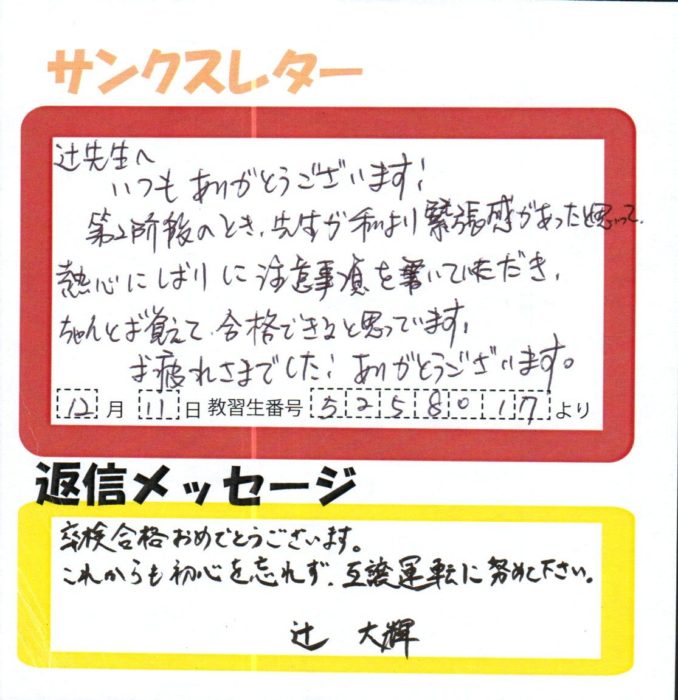 サンクスレター
辻先生へ
いつもありがとうございます!
第2階段のとき、先生が私より緊張感があったと思って、
熱心にしばりに注意事項を書いていただき、
ちゃんとば覚えて、合格できると思っています,
お疲れさまでした! ありがとうございます。
12月 11日 教習生番号 5258017より
返信メッセージ
卒検合格おめでとうございます。
これからも初心を忘れず、互譲運転に努めて下さい。
辻 大輝